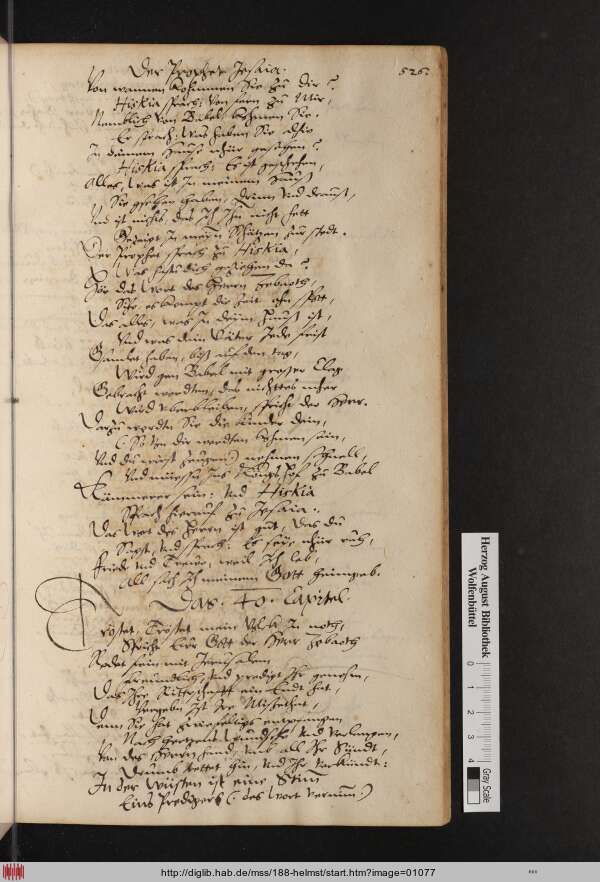 Der Prophet Jesaia.
526.
Von wannen kohmmen Sie zu dir?
Hiskia sprach: Von fern zu Mir,
Nemblich von Babel kohmen Sie.
Er sprach: Was haben Sie alhie
In deinem Hause nhur gesehen?
Hiskia sprach: Es ist geschehen,
Alles, was ist in meinem Hauß
Sie gsehen haben, drinn vnd drauß,
Vnd ist nichts, das Ich Ihn nicht hett
Gezeigt in mein Schätzen zur stedt.
Der Prophet sprach zu Hiskia,
Hör das Wort des Herrn Zebaoth,
Sihe es kompt die Zeit ohn spott,
Das alles, was in deim Hauß ist,
Vnd was dein Väter Jede frist
Gsamlet haben, biß auf den tag,
Wird gen Babel mit grosser Clag
Gebracht werdten, das nichttes mher
Wird vberbleiben, spricht der Herr.
Darzu werdtn Sie die Kinder dein,
(So von dir werdten kohmen sein,
Vnd du wirst zeugen) nehmen schnell,
Vnd müessn Ins Königs hof zu Babel
Kämmerer sein: Vnd Hiskia
Sprach hierauf zu Jesaia:
Das Wort des Herrn ist gut, das du
Sagst, vnd sprach: Es seye nhur ruh,
Friede vnd Trewe, weil Ich leb,
All sach Ich meinem Gott heimgeb.
Das. 40. Capitel.
Tröstet, Tröstet mein Volck in noth,
Spricht Eur Gott der Herr Zebaoth
Redet fein mit Jerusalem
Freundtlich, vnd predigt Ihr
Das Ihr Ritterschafft ein Endt hat,
Vergebn Ist Ire Missethat,
Denn Sie hat Zweyfeltigs empfangen
Nach hertzens Wundsch vnd verlangen,
Von des Herrn handt, vmb all Ihr Sündt,
In der Wüsten ist eine Stim
Eins Predigers (: das Wort vernimm:)
Herzog August Bibliothek
Wolfenbüttel
0 1 2 3 4
Gray Scale
http://diglib.hab.de/mss/188-helmst/start.htm?image=01077